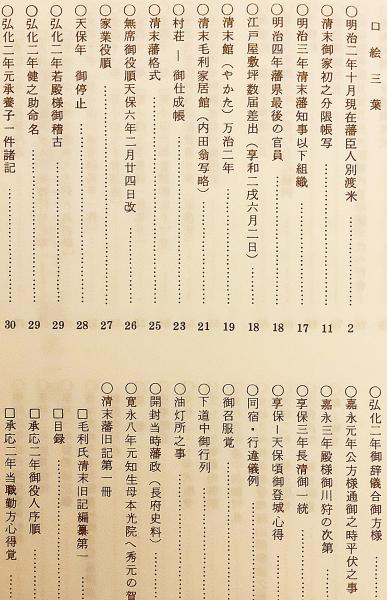 口絵三葉
〇明治二年十月現在藩臣人別渡米…………2
〇清末御家初之分限帳写…………11
〇明治三年清末藩知事以下組織…………17
〇明治四年藩県最後の官員…………18
〇江戸屋敷坪数届差出（享和二戌六月二日）…………18
〇清末館（やかた）万治二年…………19
〇清末毛利家居館（内田翁写略）…………21
〇村荘―御仕成帳…………23
〇清末藩格式…………25
〇無席御役順天保六年二月廿四日改…………26
〇家業役順…………27
〇天保年　御停止…………28
〇弘化二年若殿様御稽古…………29
〇弘化二年健之助命名…………29
〇弘化二年元承養子一件諸記…………30
〇弘化二年御辞儀合御方様…………
〇嘉永元年公方様通御之時平伏之事
〇嘉永三年殿様御川狩の次第…………
〇享保三年長清御一統…………
〇享保―天保頃御登城心得…………
〇同宿・行違儀例…………
〇御召服覚…………
〇下道中御行列…………
〇油灯所之事…………
〇開封当時藩政（長府史料）…………
〇寛永八年元知生母本光院へ秀元の賀
〇清末藩旧記第一冊
□毛利氏清末旧記編纂第一…………
□目録…………
□承応二年御役人序順…………
□承応二年当職勤方心得覚…………